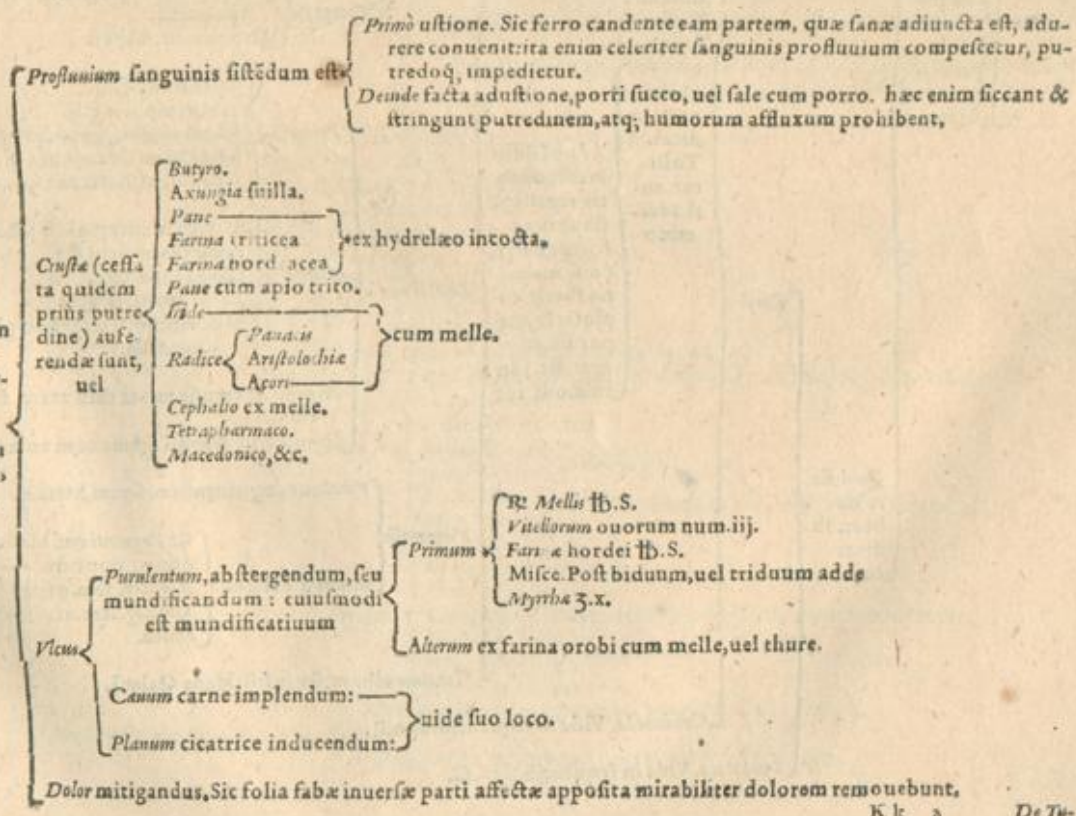 Primò uſtione. Sic ferro candente eam partem, quæ ſanæ adiuncta eſt, adu-
rere conuenit: ita enim celeriter ſanguinis profluuium compeſcetur, pu-
tredoq́; impedietur.
Profluuium ſanguinis ſiſtēdum eſt
Deinde facta aduſtione, porri ſucco, uel ſale cum porro. hæc enim ſiccant &
ſtringunt putredinem, atq; humorum affluxum prohibent.
Butyro.
Axungia ſuilla.
Pane
Farina triticea
Farina hordeacea
ex hydrelæo incocta.
Cruſtæ (ceſſa
ta quidem
priùs putre
dine) aufe-
rendæ ſunt,
uel
Pane cum apio trito.
Iride
Radice
Panacis
Ariſtolochiæ
Acori
cum melle.
Cephalio ex melle.
Tetrapharmaco.
Macedonico, &c.
Vlcus
Purulentum, abſtergendum, ſeu
mundificandum: cuiuſmodi
eſt mundificatiuum
Primum
℞ Mellis ℔.S.
Vitellorum ouorum num.iij.
Farinæ hordei ℔.S.
Miſce. Poſt biduum, uel triduum adde
Myrrhæ ʒ.x.
Alterum ex farina orobi cum melle, uel thure.
Cauum carne implendum:
Planum cicatrice inducendum:
uide ſuo loco.
Dolor mitigandus. Sic folia fabæ inuerſæ parti affectæ appoſita mirabiliter dolorem remouebunt.
De Tu-